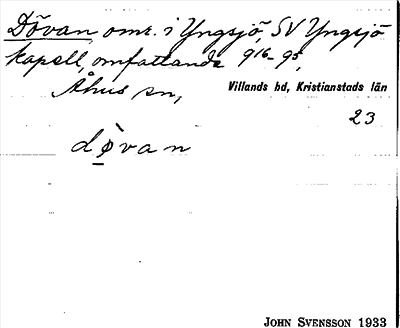 Dövan omr. i Yngsjö, SV Yngsjö
kapell, omfattande 916-95,
Åhus sn,
Villands hd, Kristianstads län
23
dø̀van
JOHN SVENSSON 1933